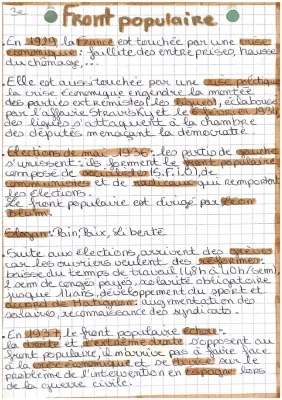 3e
Front populaire
• En 1929, la France est touchée par une crise
économique : faillite des entreprises, hausse
du chômage,...
• Elle est aussi touchée par une crise politique
la crise économique engendre la montée
des partis extrémistes (les ligues), éclaboussé
par l'affaire Stavisky et le 6 février 1934
des ligues s'attaquent à la chambre
des députés menaçant la démocratie
• Elections de mai 1936 : les partis de gauche
s'unissent : ils forment le front populaire
composé de socialistes (S.F.I.O), de
communistes et de radicaux qui remportent
les élections.
Le front populaire est dirigé par Léon
Blum.
• Slogan : Pain, Paix, Liberté
• Suite aux élections, arrivent des grèves
car les ouvriers veulent des réformes :
baisse du temps de travail (48h à 40h/sem),
2 sem de congés payés, scolarité obligatoire
jusque 14 ans, développement du sport et
accord de Matignon : augmentation des
salaires, reconnaissance des syndicats.
• En 1937 le front populaire échoue :
la droite et extrême droite s'opposent au
front populaire, il n'arrive pas à faire face
à la crise économique et se divise sur le
problème de l'intervention en Espagne lors
de la guerre civile.